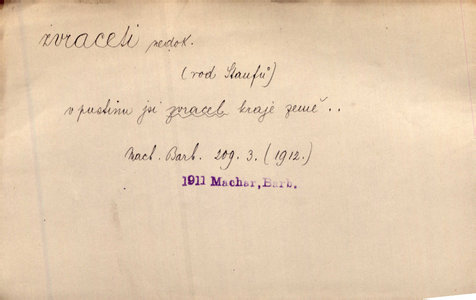 zvraceti nedok.
(rod Štaufů)
v pustinu jsi zvracel kraje země..
Mach. Barb. 209. 3. (1912.)
1911 Machar, Barb.